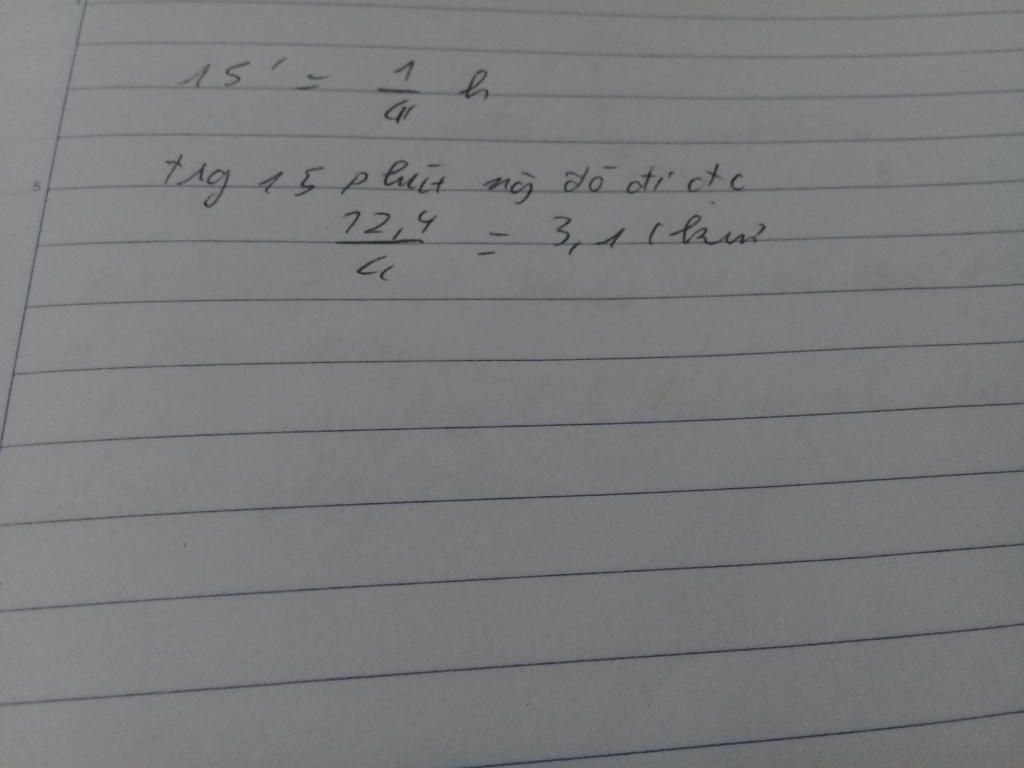 15' = 1/4 h
trg 15 phút ng đó đi đc
12,4/4 = 3,1 (km)